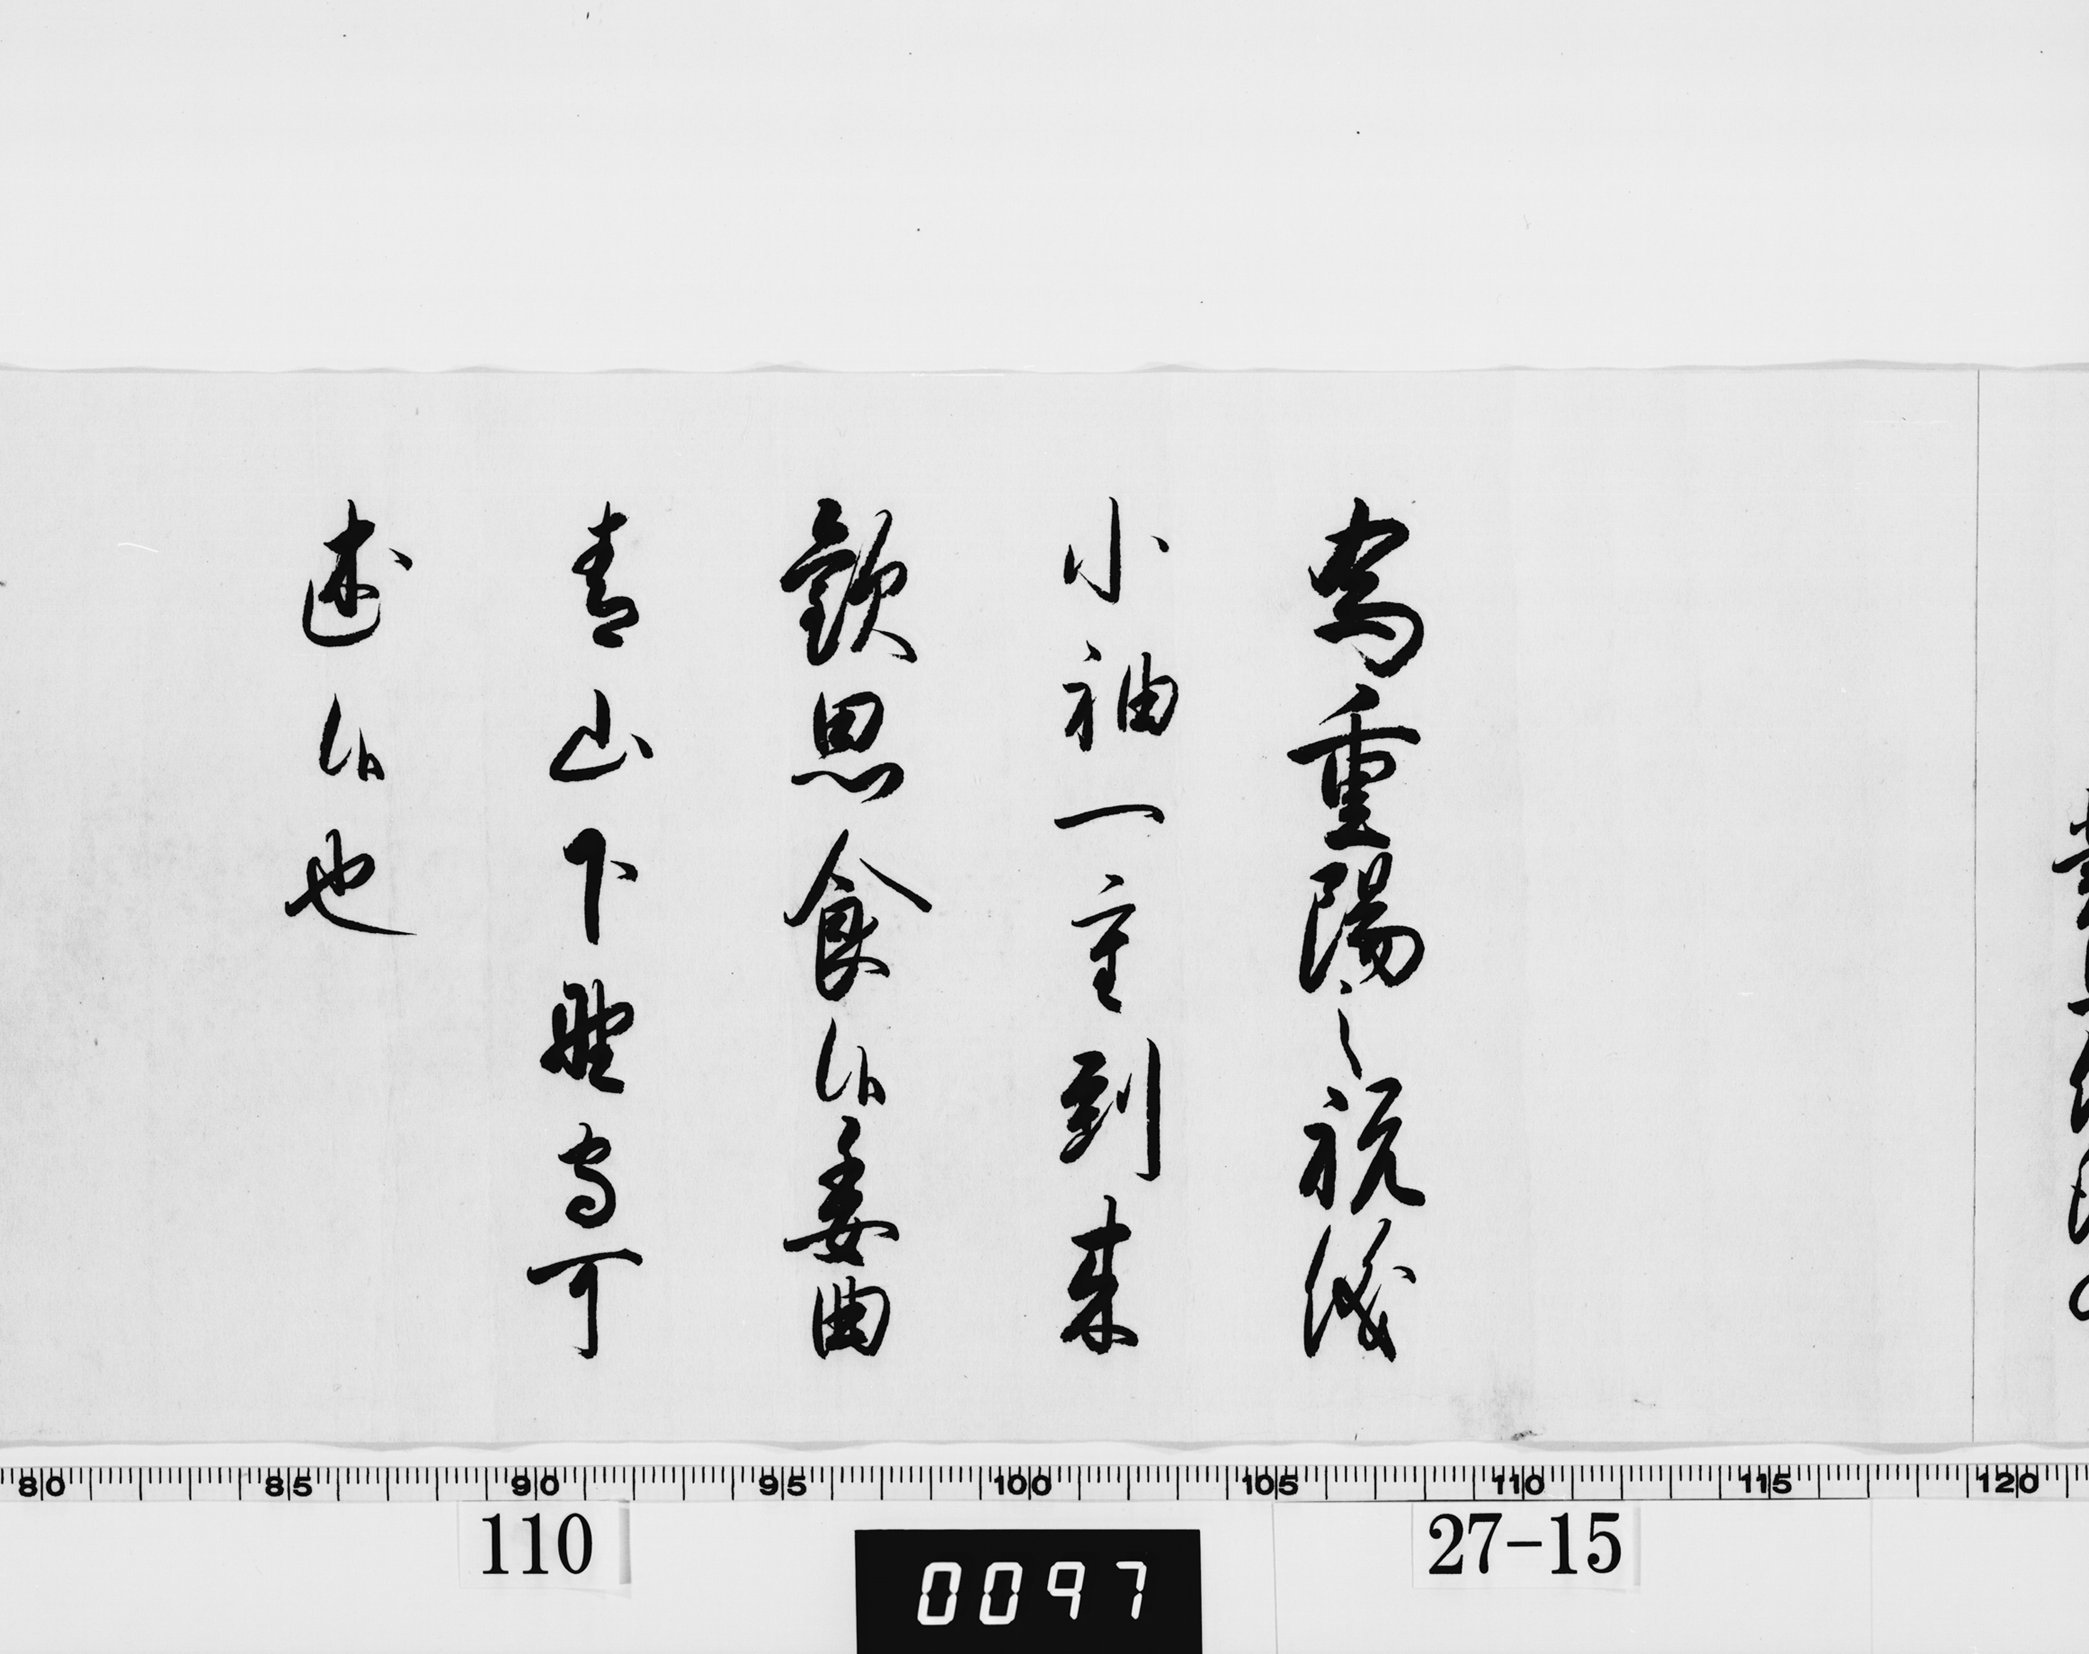 為重陽之祝儀
小袖一重到来
歓思食候委曲
青山下野守可
述候也
80 85 90 95 100 105 110 115 120
110
0097
27-15